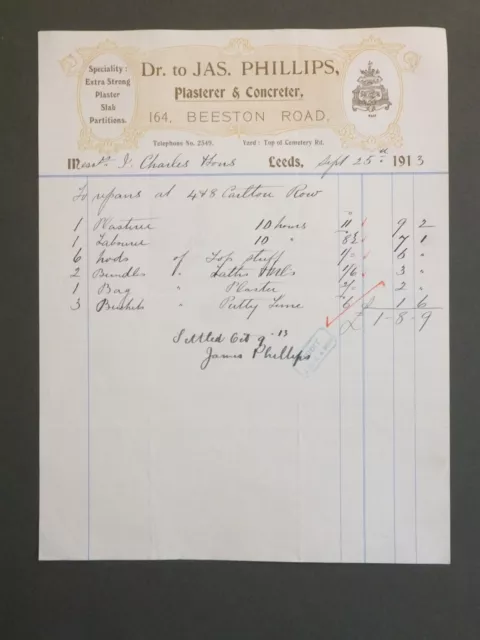 Speciality:
Extra Strong
Plaster
Slab
Partitions.
Dr. to JAS. PHILLIPS,
Plasterer & Concreter,
164, BEESTON ROAD.
Telephone No. 2549. Yard: Top of Cemetery Rd.
Messrs Charles & Sons Leeds, Sept 25th 1913
To repairs at 4 & 8 Carlton Row
1 Plasterer 10 hours 11 9 2
1 Labourer 10 " 8½ 7 1
6 hods of Top stuff 1/0 6 "
2 Bundles " Laths 1/6 3 "
1 Bag " Plaster 2/0 2 "
3 Buckets " Putty Lime 6 1 6
£ 1-8-9
Settled Oct 9 - 13
James Phillips